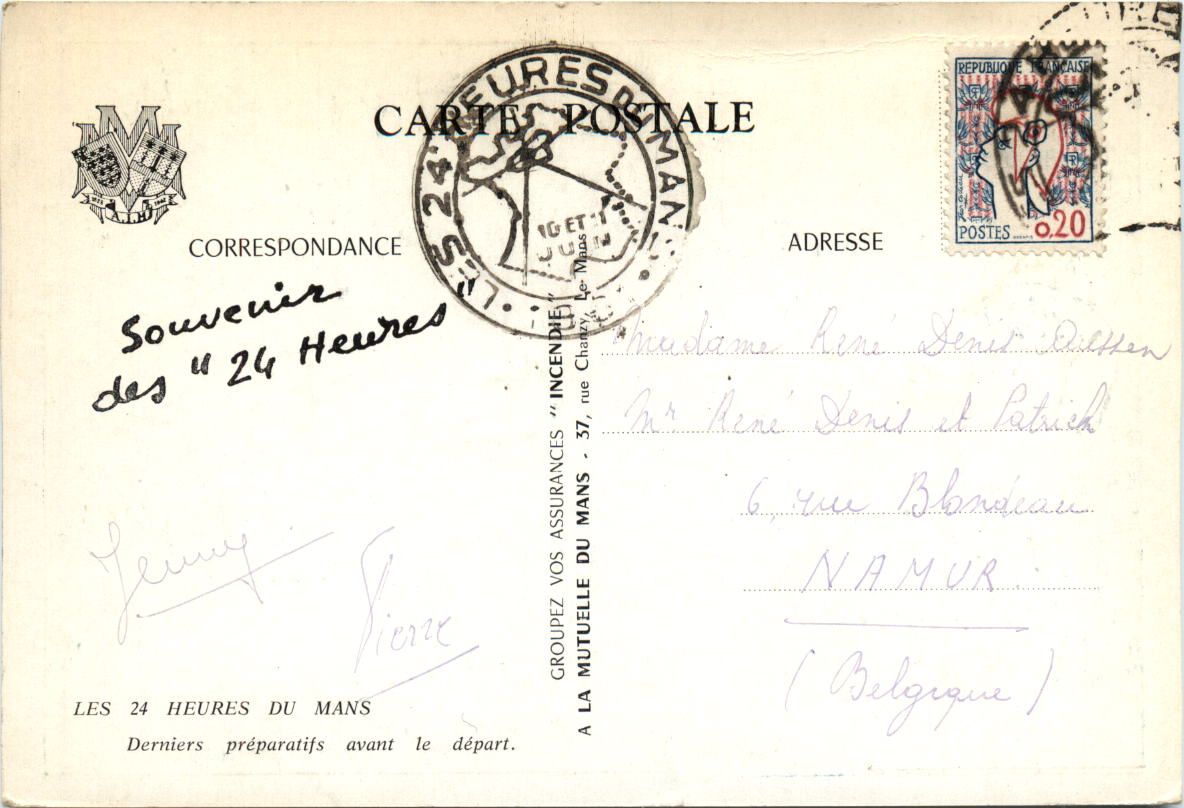 CARTE POSTALE
LES 24 HEURES DU MANS
JUIN
RÉPUBLIQUE FRANÇAISE
POSTES
0,20
M
A.I.M
CORRESPONDANCE
ADRESSE
Souvenir
des "24 Heures"
Jenny
Pierre
LES 24 HEURES DU MANS
Derniers préparatifs avant le départ.
GROUPEZ VOS ASSURANCES "INCENDIE"
A LA MUTUELLE DU MANS - 37, rue Chanzy, Le Mans
Madame René Denis
Mr René Denis et Patrick
6, rue Blondeau
NAMUR
(Belgique)